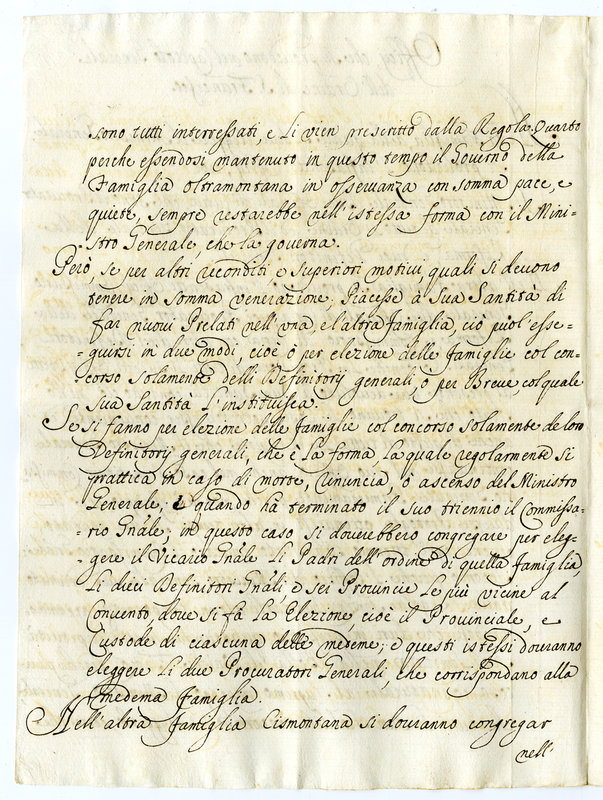 sono tutti interressati, e li vien prescritto dalla Regola. Quarto
perche essendosi mantenuto in questo tempo il Governo della
Famiglia oltramontana in osseruanza con somma pace, e
quiete, sempre restarebbe nell'istessa forma con il Mini=
=stro Generale, che la governa.
Però, se per altri reconditi e superiori motiui, quali si deuono
tenere in somma venerazione, Piacesse à Sua Santità di
far nuoui Prelati nell'vna, e l'altra famiglia, ciò puol'esse=
=guirsi in due modi, cioè ò per elezione delle famiglie col con=
=corso solamente delli Definitorij generali, ò per Breue, col quale
sua Santità l'instituisca.
Se si fanno per elezione delle famiglie col concorso solamente de loro
Definitorij generali, che è la forma, la quale regolarmente si
prattica in caso di morte, rinuncia, ò ascenso del Ministro
Generale; è quando hà terminato il suo triennio il Commissa=
=rio Gnãle; in questo caso si douerebbero congregare per eleg=
=gere il Vicario Gnãle li Padri dell'ordine di quella famiglia,
li dieci Definitori Gnãli, e sei Prouincie le più vicine al
Conuento, doue si fà la Elezione, cioè il Prouinciale, e
Custode di ciascuna delle medeme; e questi istessi douranno
eleggere li due Procuratori Generali, che corrispondano alla
medema famiglia.
Nell'altra famiglia Cismontana si douranno congregar
nell'